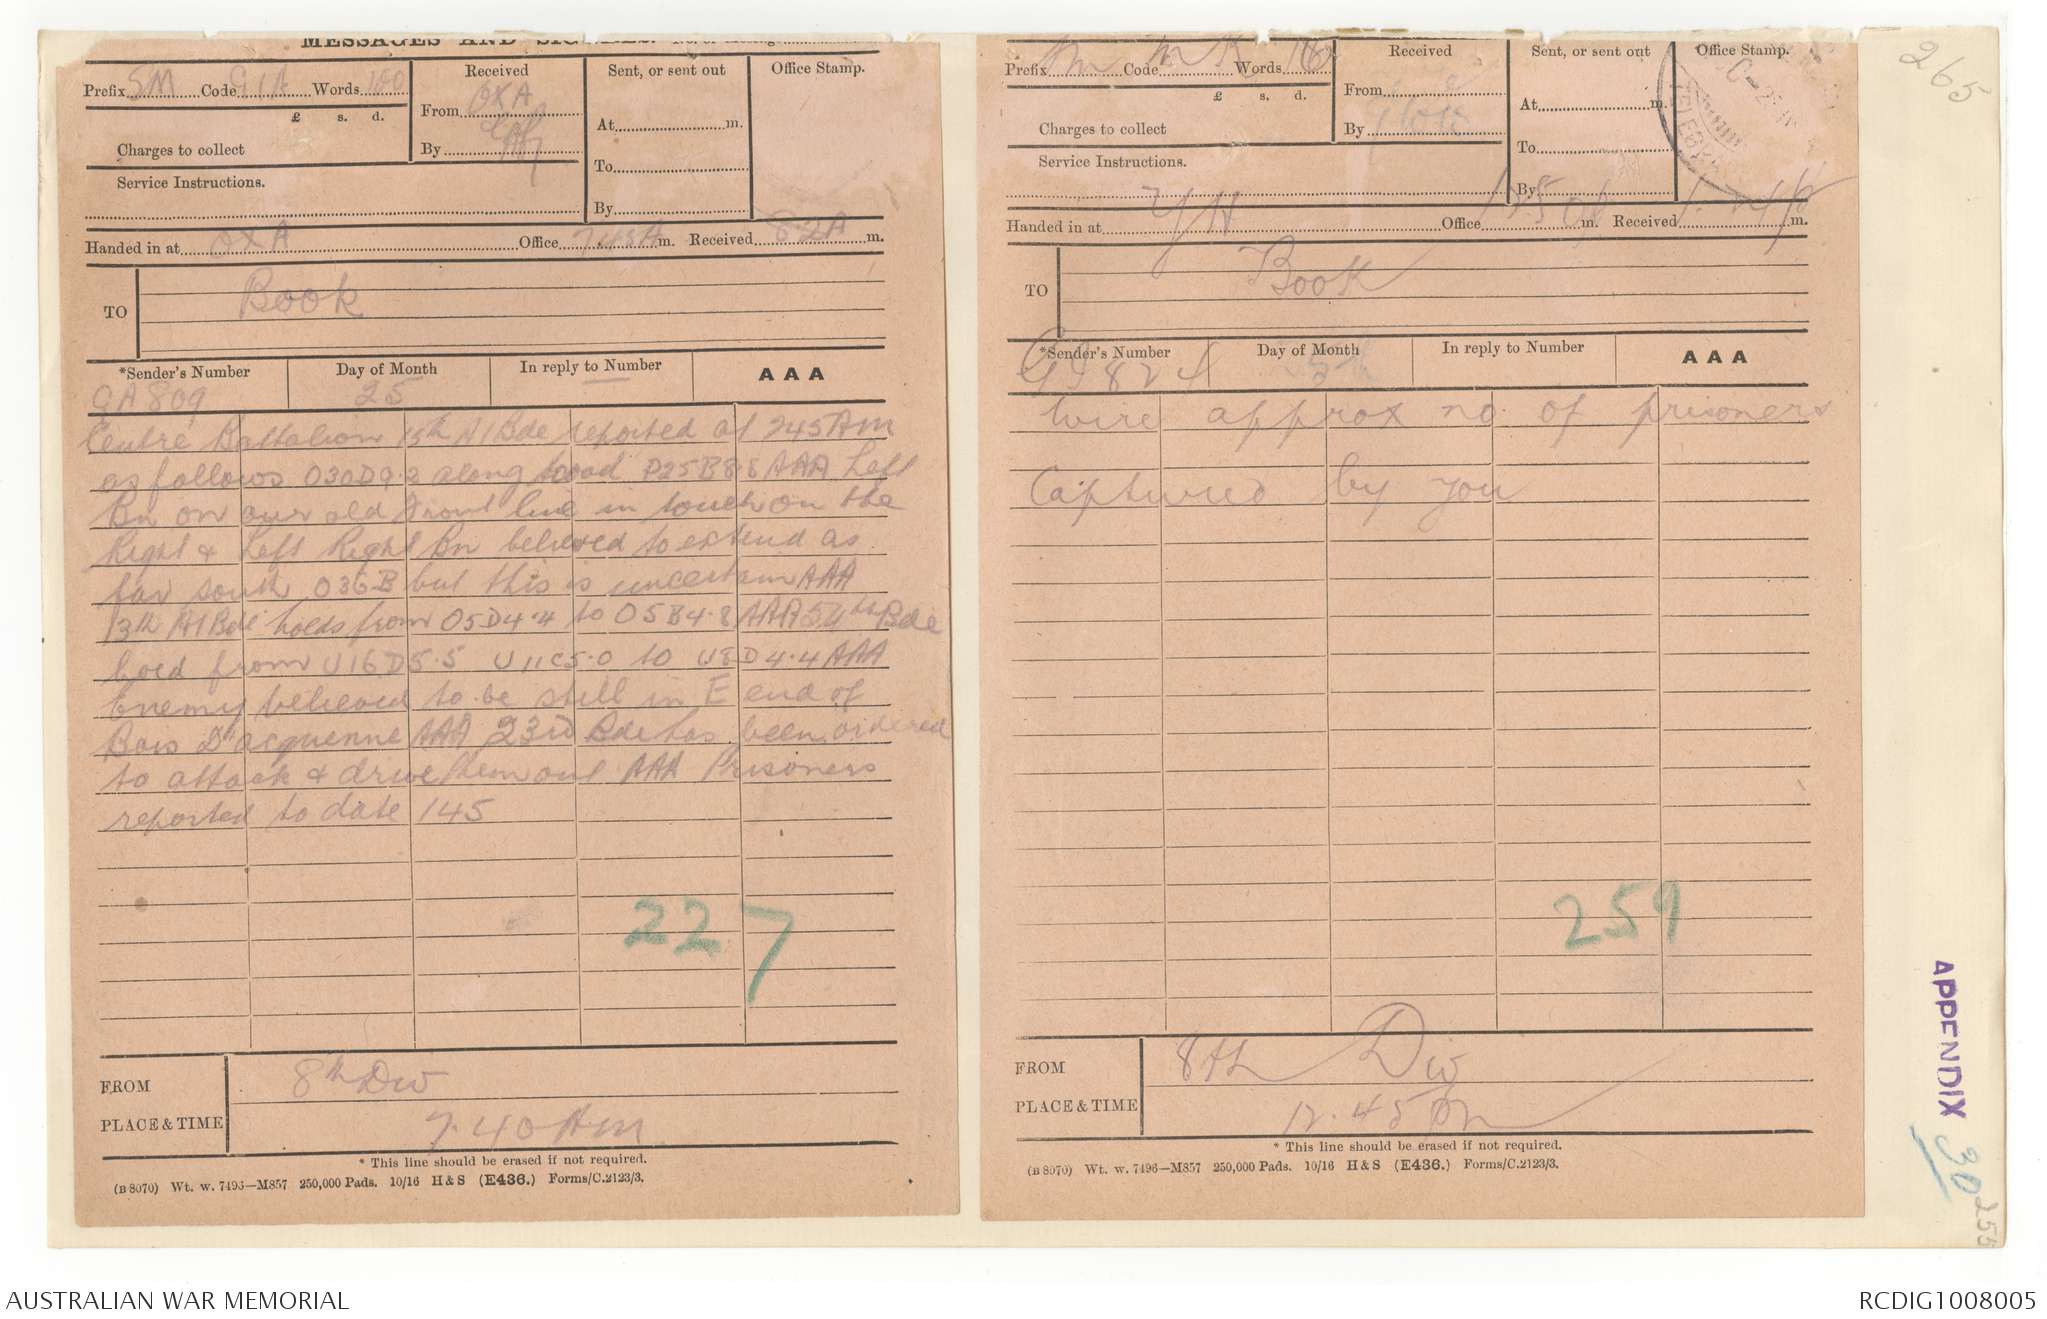 MESSAGES AND SIGNALS.
Prefix SM Code 91A Words 100
Received
From OXA
By
Sent, or sent out
At m.
To
By
Office Stamp.
£ s. d.
Charges to collect
Service Instructions.
Handed in at OXA Office 748A m. Received 82A m.
TO Book
*Sender's Number Day of Month In reply to Number AAA
GA809 25 —
Centre Battalion 15th A I Bde reported at 245 AM
as follows O30D9.2 along road P25B8.8 AAA Left
Bn on our old front line in touch on the
Right & Left Right Bn believed to extend as
far south O36B but this is uncertain AAA
13th AI Bde holds from O5D4.4 to O5B4.8 AAA 54th Bde
hold from U16D5.5 U11C5.0 to U8D4.4 AAA
Enemy believed to be still in E end of
Bois D'acquenne AAA 23rd Bde has been ordered
to attack & drive them out AAA Prisoners
reported to date 145
227
FROM 8th Div
PLACE & TIME 7.40 AM
* This line should be erased if not required.
(B 8070) Wt. w. 7496—M857 250,000 Pads. 10/16 H & S (E436.) Forms/C.2123/3.
Prefix Code Words 16
Received
From
By
Sent, or sent out
At m.
To
By
Office Stamp.
£ s. d.
Charges to collect
Service Instructions.
Handed in at YH Office m. Received m.
TO Book
*Sender's Number Day of Month In reply to Number AAA
824
Wire approx no of prisoners
Captured by you
259
FROM 8th Div
PLACE & TIME 12.45 PM
* This line should be erased if not required.
(B 8070) Wt. w. 7496—M857 250,000 Pads. 10/16 H & S (E436.) Forms/C.2123/3.
265
APPENDIX 30
255
AUSTRALIAN WAR MEMORIAL
RCDIG1008005